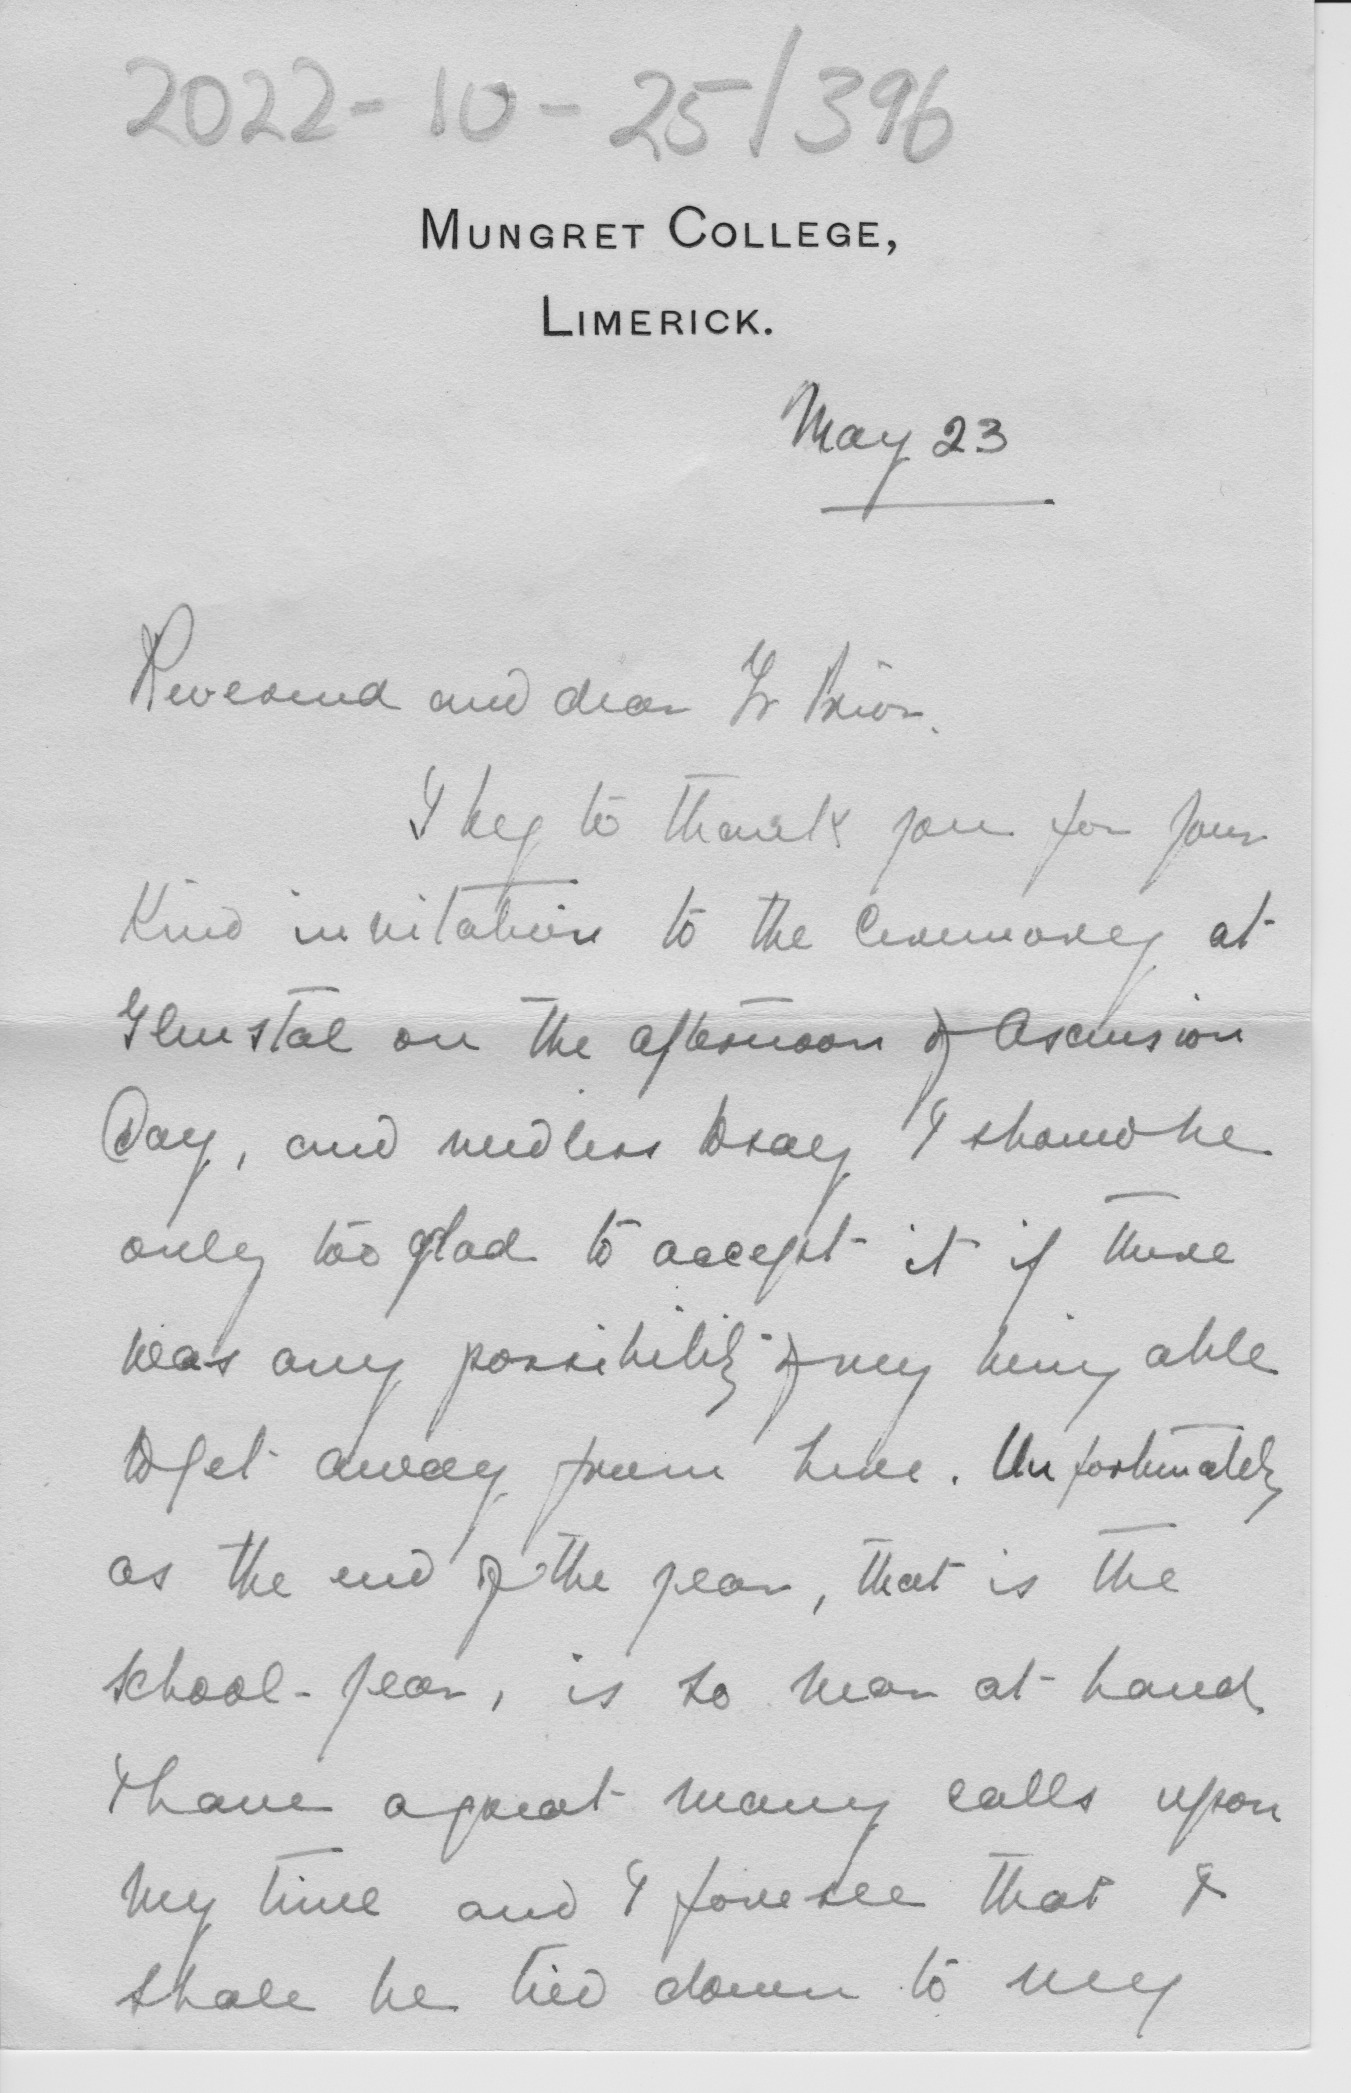 2022-10-25/396
MUNGRET COLLEGE,
LIMERICK.
May 23
Reverend and dear Fr Prior.
I beg to thank you for your
kind invitation to the Ceremony at
Glenstal on the afternoon of Ascension
Day, and needless to say I should be
only too glad to accept it if there
was any possibility of my being able
to get away from here. Unfortunately
as the end of the year, that is the
school-year, is so near at hand
I have a great many calls upon
my time and I foresee that I
shall be tied down to my